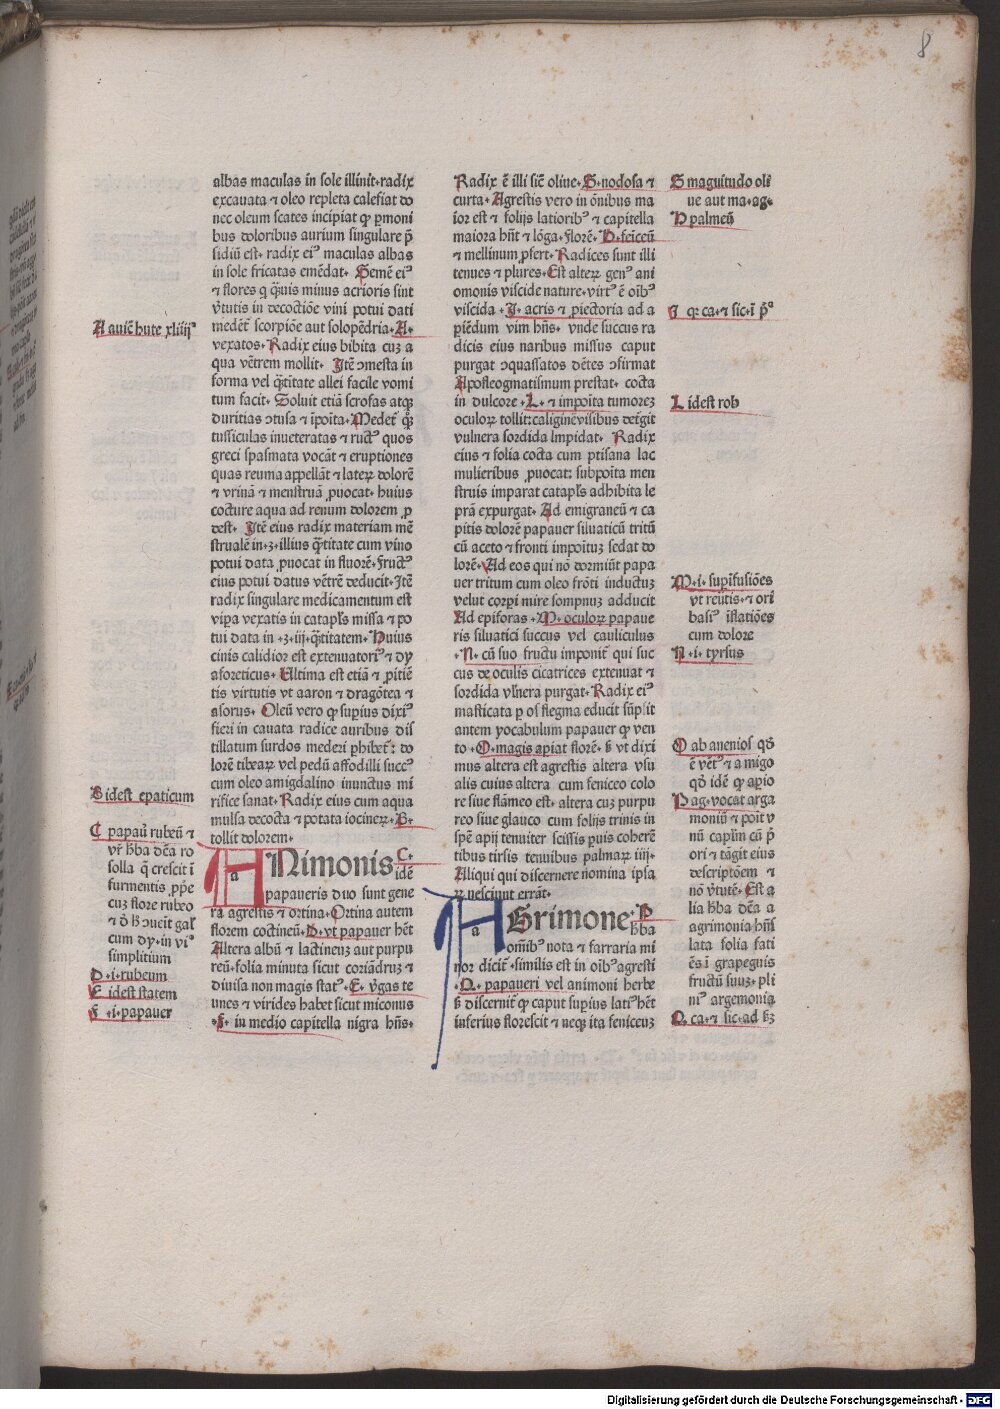 8
albas maculas in sole illinit·radix
excauata ⁊ oleo repleta calefiat do
nec oleum scates incipiat qͥ ꝑmoni
bus doloribus aurium singulare p̄
sidiū est· radix eiꝰ maculas albas
in sole fricatas emēdat· Semē eiꝰ
⁊ flores q̄ q̄uis minus acrioris sint
v̄tutis in decoctiōe vini potui dati
medēt scorpiōe aut solopēdria·A·
vexatos· Radix eius bibita cuꝫ a
qua vētrem mollit· Itē ꝯmesta in
forma vel q̄titate allei facile vomi
tum facit· Soluit etiā scrofas atqꝫ
duritias ꝯtusa ⁊ īpoīta· Medet̄ q̄ꝫ
tussiculas inueteratas ⁊ ructꝰ quos
greci spasmata vocāt ⁊ eruptiones
quas reuma appellāt ⁊ lateꝝ dolorē
⁊ vrinā ⁊ menstruā ꝓuocat· huius
cocture aqua ad renum dolorem ꝓ
dest· Itē eius radix materiam mē
strualē in·ʒ·illius q̄titate cum vino
potui data ꝓuocat in fluorē· fructꝰ
eius potui datus vētrē deducit· Itē
radix singulare medicamentum est
viꝑa vexatis in cataplꝭ missa ⁊ po
tui data in·ʒ·iij·q̄titatem· Huius
cinis calidior est extenuatoriꝰ ⁊ dy
aforeticus· Ultima est etiā ⁊ ꝑitiē
tis virtutis vt aaron ⁊ dragōtea ⁊
asorus· Oleū vero qͥ supius dixiꝰ
fieri in cauata radice auribus dis
tillatum surdos mederi ꝑhibet̄: do
lorē tibeaꝝ vel pedū affodilli succꝰ
cum oleo amigdalino inunctus mi
rifice sanat· Radix eius cum aqua
mulsa decocta ⁊ potata iocineꝝ·B·
tollit dolorem·
a ANimonis C·
idē
papaueris duo sunt gene
ra agrestis ⁊ ortina· Ortina autem
florem coctineū·D·vt papauer hēt
Altera albū ⁊ lactineuꝫ aut purpu
reū·folia minuta sicut coriādruꝫ ⁊
diuisa non magis statꝰ·E·v̄gas te
unes ⁊ virides habet sicut miconus
·F· in medio capitella nigra hn̄s·
A auic̄ bute xliiijª
B idest epaticum
C papaū rubeū ⁊
vr̄ hb̄a dc̄a ro
solla q̄ crescit ī
furmentis ꝓp̄e
cuꝫ flore rubeo
⁊ d̓ h̓ ꝯueīt gal̓
cum dy·in viꝰ
simplitium
D·i·rubeum
E idest statem
F ·i·papauer
Radix ē illi sic̄ oliue·G·nodosa ⁊
curta· Agrestis vero in ōnibus ma
ior est ⁊ folijs latioribꝰ ⁊ capitella
maiora hn̄t ⁊ lōga· florē· H·feīceū
⁊ mellinum ꝓfert· Radices sunt illi
tenues ⁊ plures· Est alteꝝ genꝰ ani
omonis viscide nature·virtꝰ ē oībꝰ
viscida ·J· acris ⁊ ꝓiectoria ad a
piēdum vim hn̄s· vnde succus ra
dicis eius naribus missus caput
purgat ꝯquassatos dētes ꝯfirmat
Apofleogmatismum prestat· cocta
in dulcore ·L· ⁊ impoīta tumoreꝫ
oculoꝝ tollit:caliginēvisibus det̄git
vulnera sordida lmpidat· Radix
eius ⁊ folia cocta cum ptisana lac
mulieribus ꝓuocat: subpoīta men
struis imparat cataplꝭ adhibita le
prā expurgat· Ad emigraneū ⁊ ca
pitis dolorē papauer siluaticū tritū
cū aceto ⁊ fronti impoītuꝫ sedat do
lorē· Ad eos qui nō dormiūt papa
uer tritum cum oleo frōti inductuꝫ
velut corꝑi mire sompnuꝫ adducit
Ad epiforas ·M·oculoꝝ papaue
ris siluatici succus vel cauliculus
·N· cū suo fructu imponit̄ qui suc
cus de oculis cicatrices extenuat ⁊
sordida vl̓nera purgat· Radix eiꝰ
masticata ꝑ os flegma educit sūplit
antem yocabulum papauer qͥ ven
to ·O·magis apiat florē· ꝫ vt dixi
mus altera est agrestis altera vsu
alis cuius altera cum feniceo colo
re siue flāmeo est· altera cuꝫ purpu
reo siue glauco cum folijs trinis in
spē apij tenuiter scissis ꝓuis coherē
tibus tirsis tennibus palmaꝝ iiij·
Aliqui qui discernere nomina ipsa
ꝝ nesciunt errāt·
a AGrimone·P
hb̄a
om̄ibꝰ nota ⁊ farraria mi
nor dicit̄ ·similis est in oībꝰagresti
·Q· papaueri vel animoni herbe
ꝫ discernit̄ qͥ caput supius latiꝰ hēt
inferius florescit ⁊ neqꝫ ita feniceuꝫ
G maguitudo oli
ue aut ma·ag·
H palmeū
J qꝫ ca·⁊ sic·ī p̄ª
L idest rob
M·i·sup̄ifusiōes
vt reutis·⁊ ori
basiꝰ īstatiōes
cum dolore
N·i·tyrsus
O ab auenios qd̄
ē vētꝰ ⁊ a migo
qd̄ idē qͥ aꝑio
P ag·vocat arga
moniū ⁊ poīt v
nū capl̄m cū p̄
ori ⁊ tāgit eius
descriptōem ⁊
nō v̄tutē· Est a
lia hb̄a dc̄a a
agrimonia hn̄s
lata folia fati
ēs ī grapeguis
fructū suuꝫ·pli
niꝰ argemonia
Q ca·⁊ sic·ad lꝫ
Digitalisierung gefördert durch die Deutsche Forschungsgemeinschaft - DFG